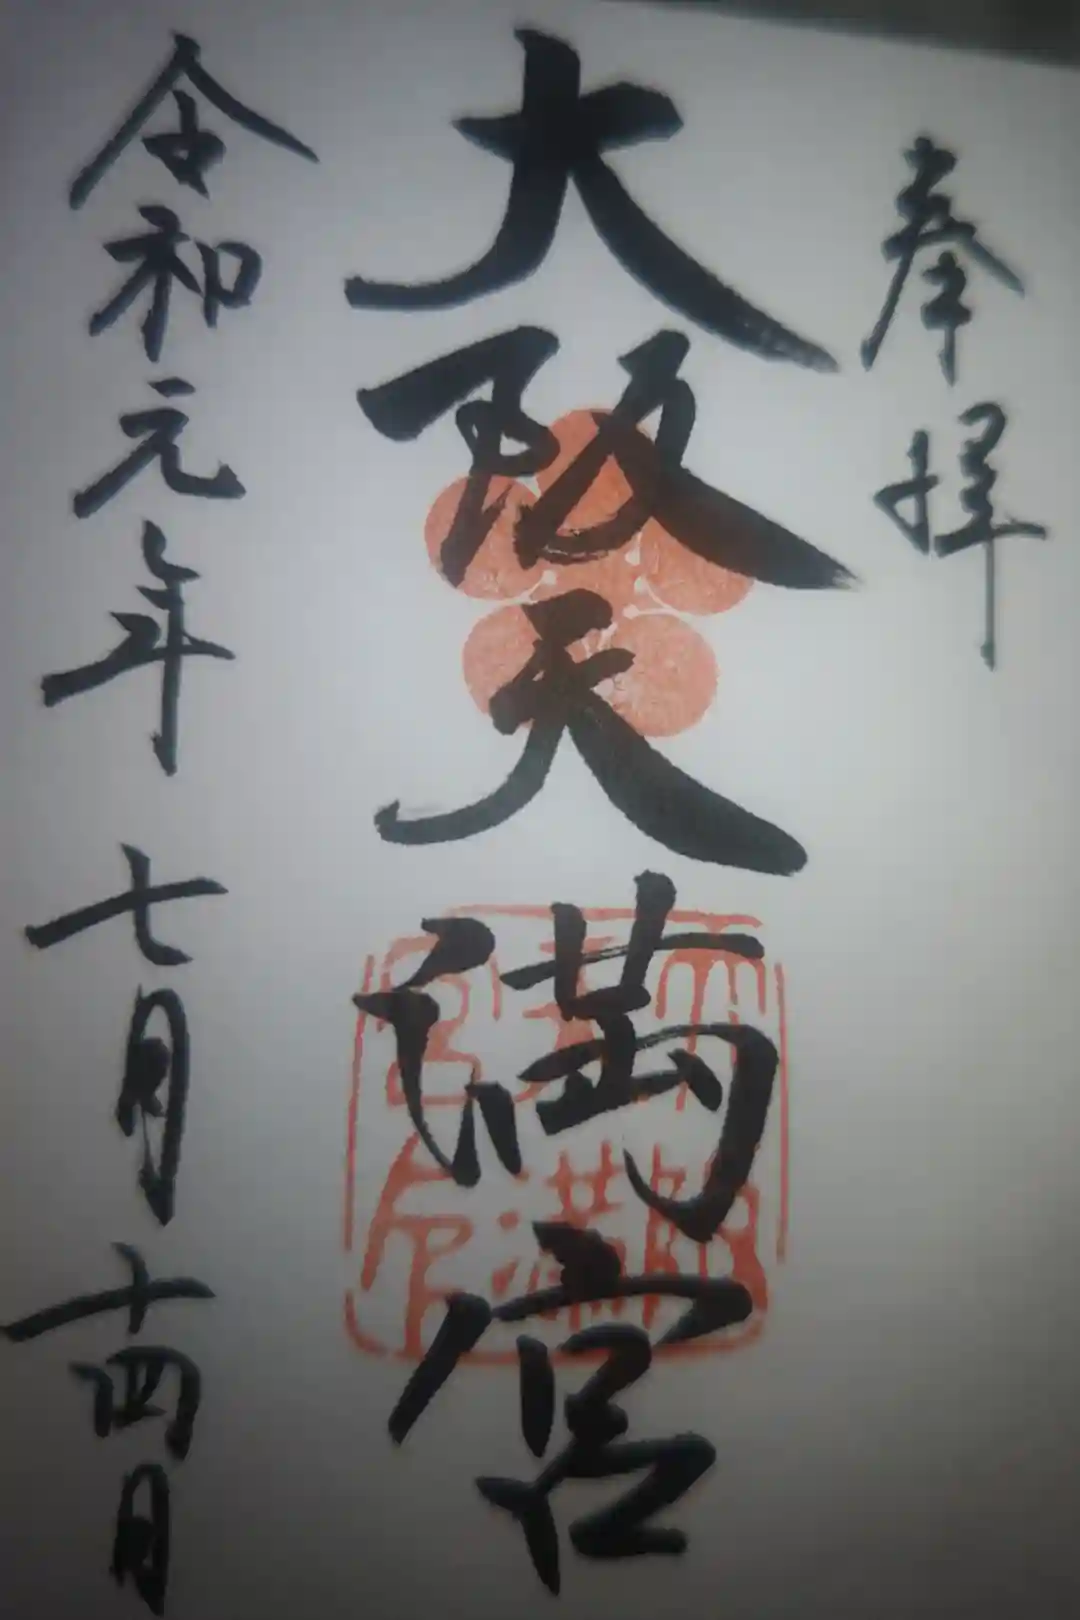 奉拝
大阪天満宮
令和元年七月十四日